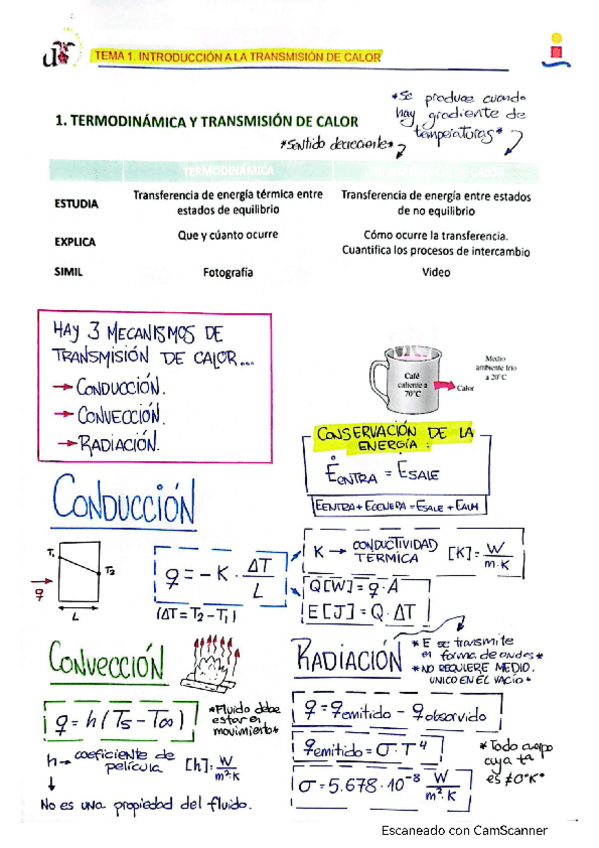 TEMA 1. INTRODUCCIÓN A LA TRANSMISIÓN DE CALOR
*Se produce cuando
hay gradiente de
temperaturas*
1. TERMODINÁMICA Y TRANSMISIÓN DE CALOR
*Sentido decreciente*
TERMODINÁMICA
ESTUDIA
Transferencia de energía térmica entre
estados de equilibrio
Transferencia de energía entre estados
de no equilibrio
EXPLICA
Que y cúanto ocurre
Cómo ocurre la transferencia.
Cuantifica los procesos de intercambio
SIMIL
Fotografía
Video
HAY 3 MECANISMOS DE
TRANSMISIÓN DE CALOR...
→ CONDUCCIÓN.
→ CONVECCIÓN.
→ RADIACIÓN.
Café
caliente a
70°C
Calor
Medio
ambiente frío
a 20°C
CONSERVACIÓN DE LA
ENERGÍA:
Ė ENTRA = E SALE
EENTRA + EGENERA = ESALE + EALM
CONDUCCIÓN
T₁
T₂
q
L
q = -K · ΔT/L
(ΔT = T₂ - T₁)
K → CONDUCTIVIDAD
TÉRMICA [K] = W/m·K
Q[W] = q · A
E[J] = Q · ΔT
CONVECCIÓN
q = h(Ts - T∞)
*Fluido debe
estar en
movimiento*
h → coeficiente de
película [h] = W/m²·K
↓
No es una propiedad del fluido.
RADIACIÓN
*E se transmite
en forma de ondas*
*NO REQUIERE MEDIO.
UNICO EN EL VACÍO*
q = qemitido - qobsorvido
qemitido = σ · T⁴
σ = 5.678 · 10⁻⁸ W/m²·K
*Todo cuerpo
cuya tª
es ≠ 0°K*
Escaneado con CamScanner